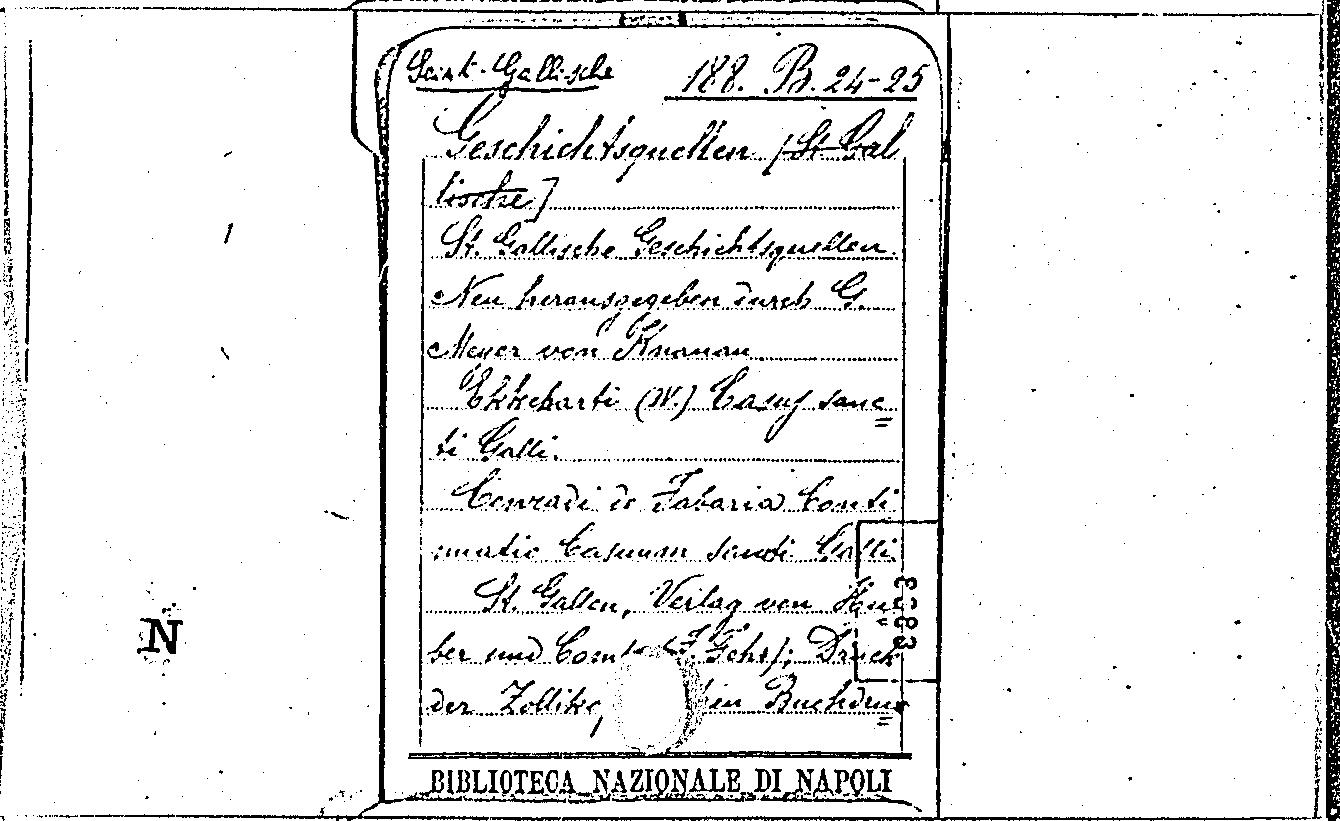 Sankt-Gallische 188. B. 24-25
Geschichtsquellen [St Gal
lische]
St. Gallische Geschichtsquellen.
Neu herausgegeben durch G.
Meyer von Knonau
Ekkeharti (IV.) Casus sanc=
ti Galli.
Conradi de Fabaria Conti
nuatio Casuum sancti Galli
St. Gallen, Verlag von Hu
ber und Com (F. Fehr); Druck
der Zolliko en Buchdru=
3383
N
BIBLIOTECA NAZIONALE DI NAPOLI